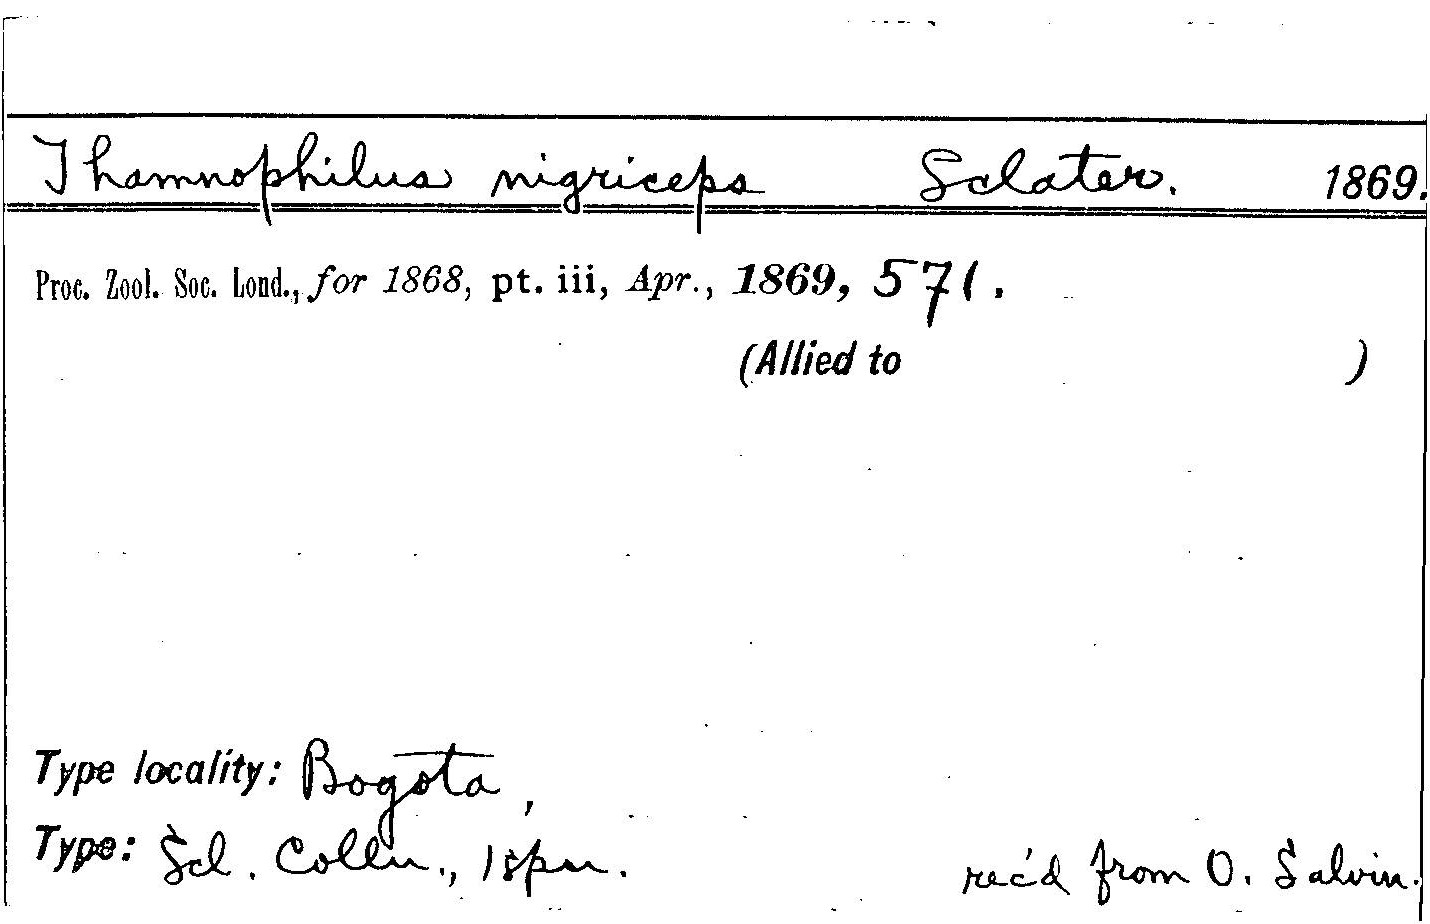 Thamnophilus nigriceps Sclater. 1869.
Proc. Zool. Soc. Lond., for 1868, pt. iii, Apr., 1869, 571.
(Allied to )
Type locality: Bogota,
Type: Scl. Colln., 1 spm. rec'd from O. Salvin.